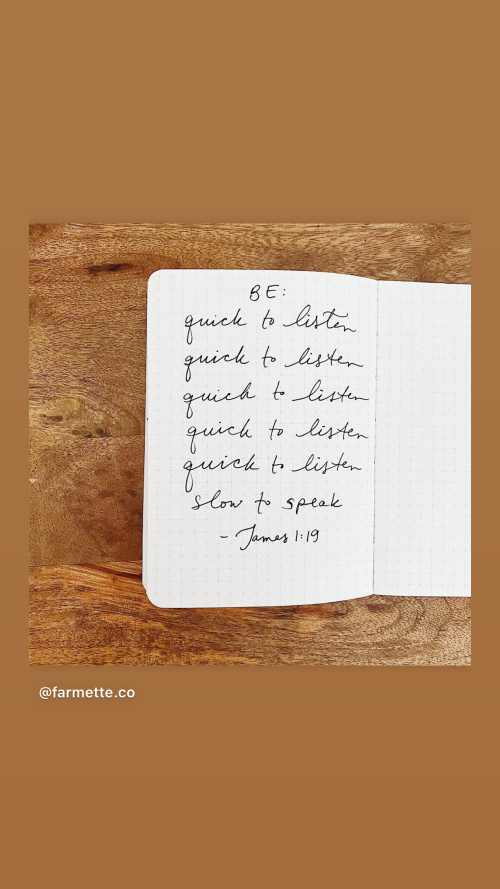 BE:
quick to listen
quick to listen
quick to listen
quick to listen
quick to listen
slow to speak
- James 1:19
@farmette.co